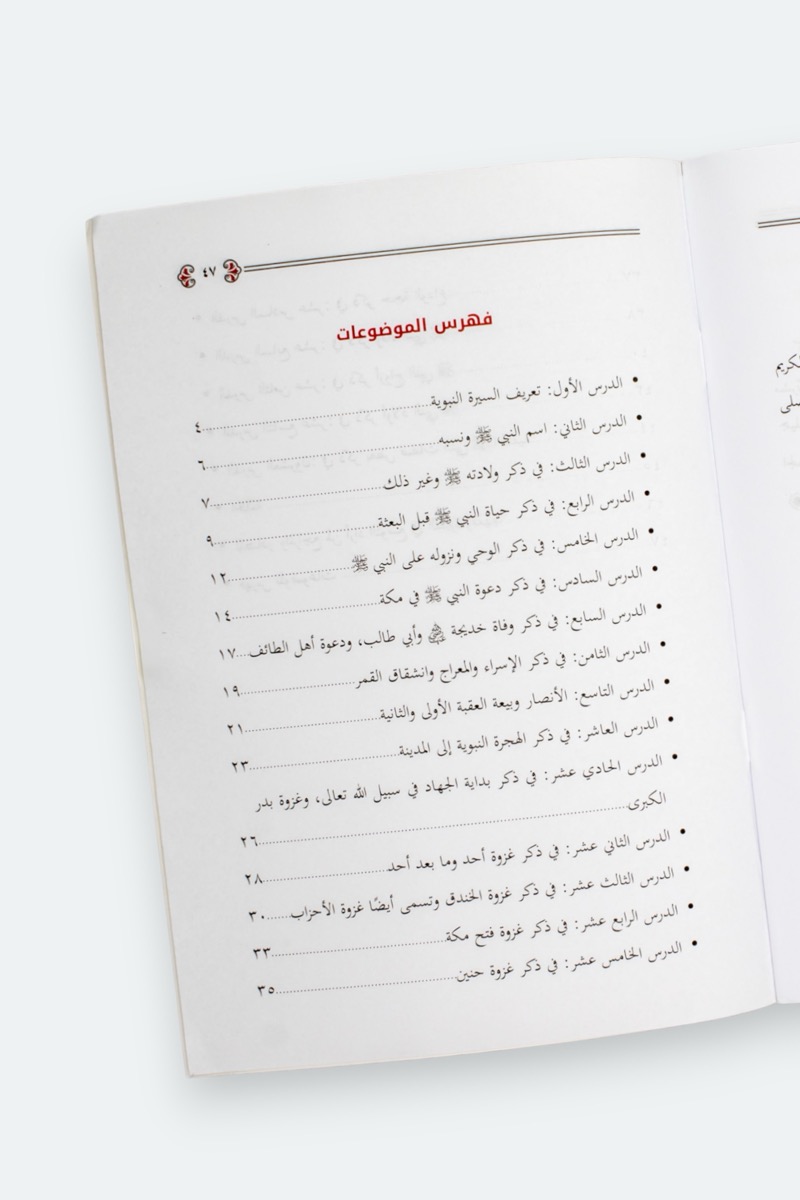 ٤٧
فهرس الموضوعات
• الدرس الأول: تعريف السيرة النبوية ٤
• الدرس الثاني: اسم النبي ﷺ ونسبه ٦
• الدرس الثالث: في ذكر ولادته ﷺ وغير ذلك ٧
• الدرس الرابع: في ذكر حياة النبي ﷺ قبل البعثة ٩
• الدرس الخامس: في ذكر الوحي ونزوله على النبي ﷺ ١٢
• الدرس السادس: في ذكر دعوة النبي ﷺ في مكة ١٤
• الدرس السابع: في ذكر وفاة خديجة وأبي طالب، ودعوة أهل الطائف ١٧
• الدرس الثامن: في ذكر الإسراء والمعراج وانشقاق القمر ١٩
• الدرس التاسع: الأنصار وبيعة العقبة الأولى والثانية ٢١
• الدرس العاشر: في ذكر الهجرة النبوية إلى المدينة ٢٣
• الدرس الحادي عشر: في ذكر بداية الجهاد في سبيل الله تعالى، وغزوة بدر
الكبرى ٢٦
• الدرس الثاني عشر: في ذكر غزوة أحد وما بعد أحد ٢٨
• الدرس الثالث عشر: في ذكر غزوة الخندق وتسمى أيضًا غزوة الأحزاب ٣٠
• الدرس الرابع عشر: في ذكر غزوة فتح مكة ٣٣
• الدرس الخامس عشر: في ذكر غزوة حنين ٣٥